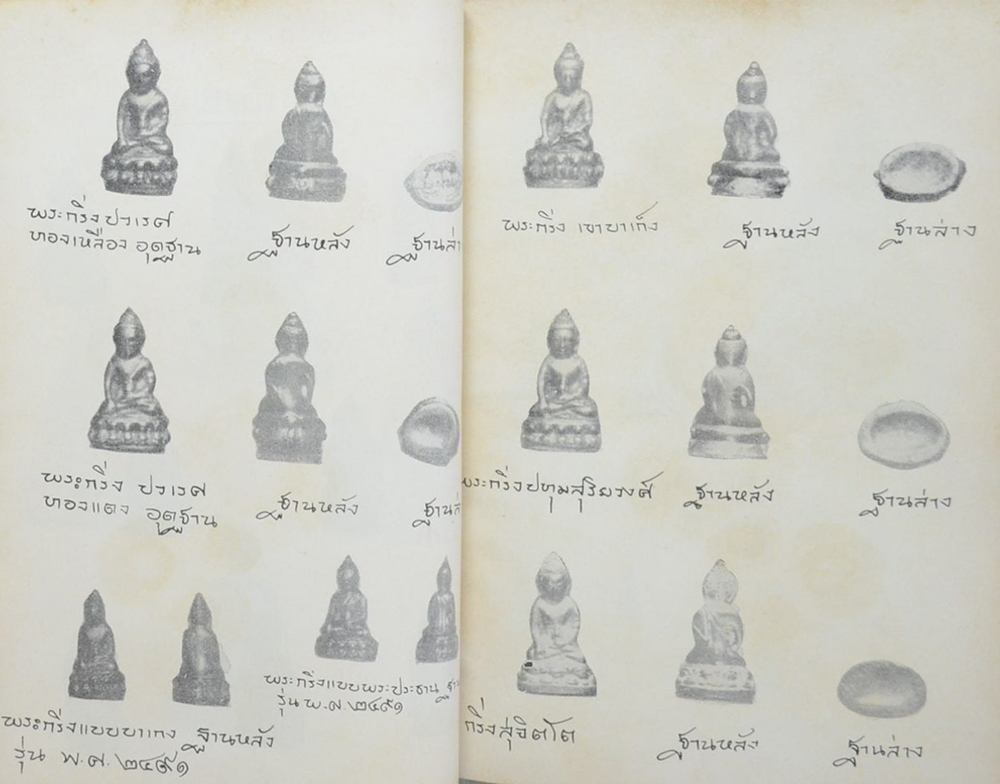 พระกริ่งปวเรศ
ทองเหลือง อุดฐาน
ฐานหลัง
ฐานล่า
พระกริ่ง ปวเรศ
ทองแดง อุดฐาน
ฐานหลัง
ฐานล
พระกริ่งแบบพระประธาน ฐา
รุ่น พ.ศ. ๒๔๙๑
พระกริ่งแบบบาเกง ฐานหลัง
รุ่น พ.ศ. ๒๔๙๑
พระกริ่ง เขาบาเก็ง
ฐานหลัง
ฐานล่าง
พระกริ่งปทุมสุริยวงศ์
ฐานหลัง
ฐานล่าง
กริ่งสุจิตโต
ฐานหลัง
ฐานล่าง